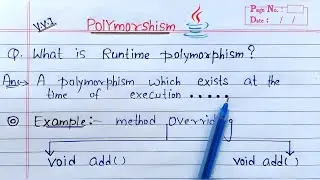 V.V.I
Polymorshism
Page No.:
Date: / /
Q. What is Runtime polymorphism?
Ans→ A polymorphism which exists at the
time of execution ......
Example:- method Overriding
void add() void add()